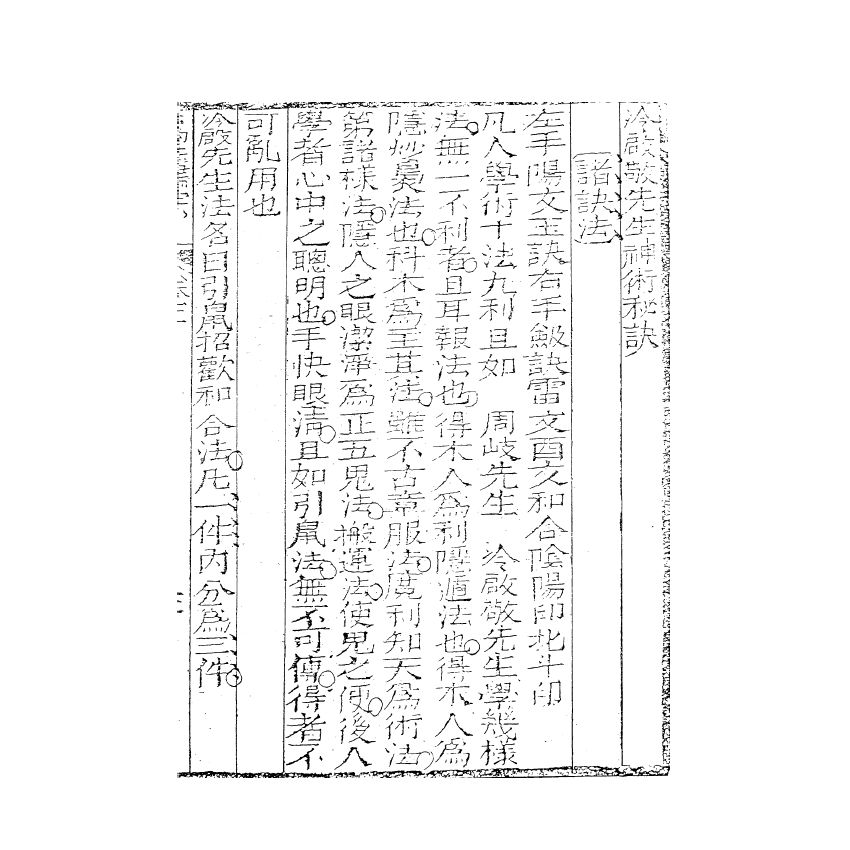 冷啟敬先生神術秘訣
諸訣法
左手陽文玉訣右手劔訣雷文酉文和合陰陽印北斗印
凡人學術十法九利且如　周岐先生　冷啟敬先生學幾樣
法無一不利者且耳報法也得木人為利隱遁法也得木人為
隱妙㬎法也科木為至其法雖不古章服法廣利知天為術法
第諸樣法隱人之眼潔淨為正五鬼法搬運法使鬼之便後人
學者心中之聰明也手快眼清且如引鼠法無不可傳得者不
可亂用也
冷啟先生法名曰引鼠招歡和合法凡一件內分為三件